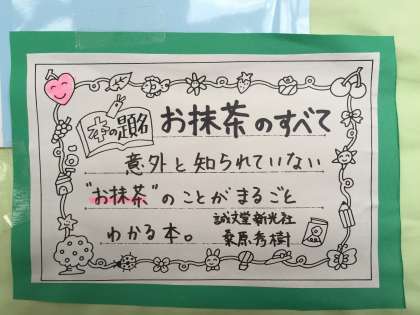 本の題名
お抹茶のすべて
意外と知られていない
"お抹茶"のことがまるごと
わかる本。
誠文堂新光社
桑原秀樹